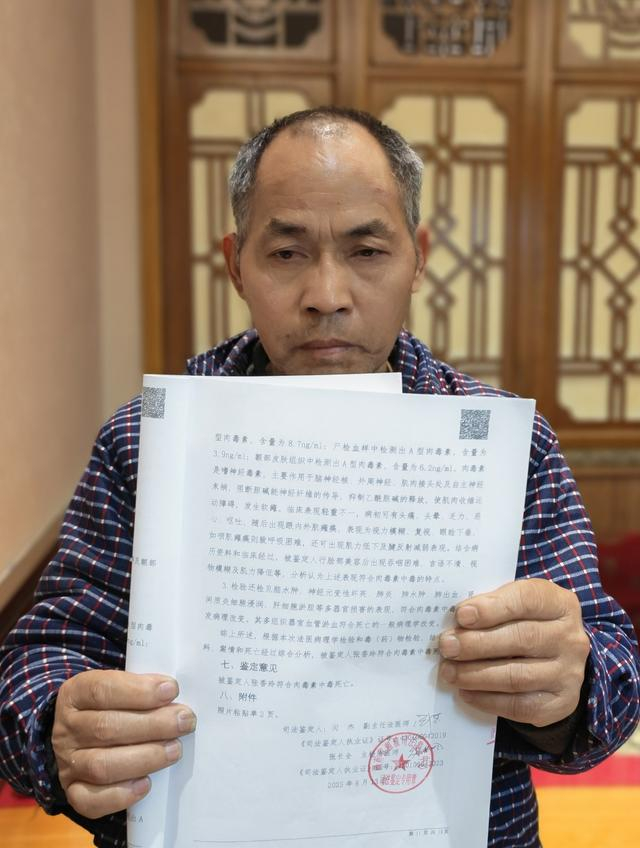 型肉毒素，含量为8.7ng/ml；尸检血样中检测出A型肉毒素，含量为
3.9ng/ml；额部皮肤组织中检测出A型肉毒素，含量为6.2ng/ml。肉毒素
是嗜神经毒素，主要作用于脑神经核、外周神经、肌肉接头处及自主神经
末梢，阻断胆碱能神经纤维的传导，抑制乙酰胆碱的释放，使肌肉收缩运
动障碍，发生软瘫。临床表现轻重不一，病初可有头痛、头晕、乏力、恶
心、呕吐，随后出现眼内外肌瘫痪，表现为视力模糊、复视、眼睑下垂，
如咽肌瘫痪则致呼吸困难，还可出现肌力低下及腱反射减弱表现。结合病
历资料和临床经过，被鉴定人行脸部美容后出现吞咽困难、言语不清、视
物模糊及肌力降低等，分析认为上述表现符合肉毒素中毒的特点。
3.检验还检见脑水肿，神经元变性坏死，肺炎、肺水肿、肺出血，
间质炎细胞浸润，肝细胞淤胆等多器官损害的表现，符合肉毒素中毒
发病理改变，其多组织器官血管淤血符合死亡的一般病理学改变。
综上所述，根据本次法医病理学检验和毒（药）物检验，结
料、案情和死亡经过综合分析，被鉴定人张香玲符合肉毒素中毒死
七、鉴定意见
被鉴定人张香玲符合肉毒素中毒死亡。
八、附件
照片粘贴单2页。
司法鉴定人：闪 杰 副主任法医师
《司法鉴定人执业证》证号
张长全 主
《司法鉴定人执业证》
2025年6月13
及额部
型肉毒
ng/ml；
出A